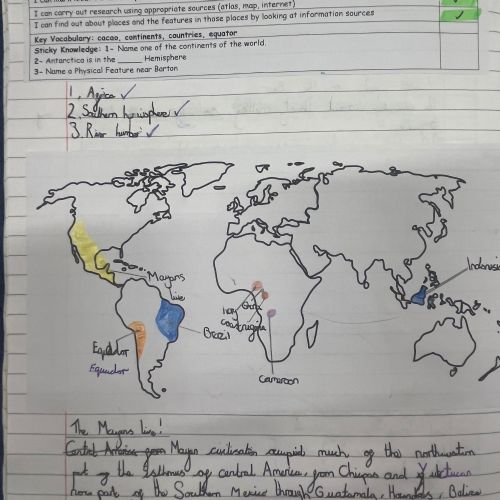 I can carry out research using appropriate sources (atlas, map, internet)
I can find out about places and the features in those places by looking at information sources
Key Vocabulary: cacao, continents, countries, equator
Sticky Knowledge: 1- Name one of the continents of the world.
2- Antarctica is in the ______ Hemisphere
3- Name a Physical Feature near Barton
1. Africa
2. Southern hemisphere
3. River humber
Indonesia
Mayans
live
Ivory
Ghana
coast
Brazil
Equador
Equador
Cameroon
The Mayans live!
Central America from Mayan civilisation occupid much of the northwestern
part of the Isthmus of central America, from Chiapas and
now part of the Southern Mexico through Guatamala, Honduras, Belize